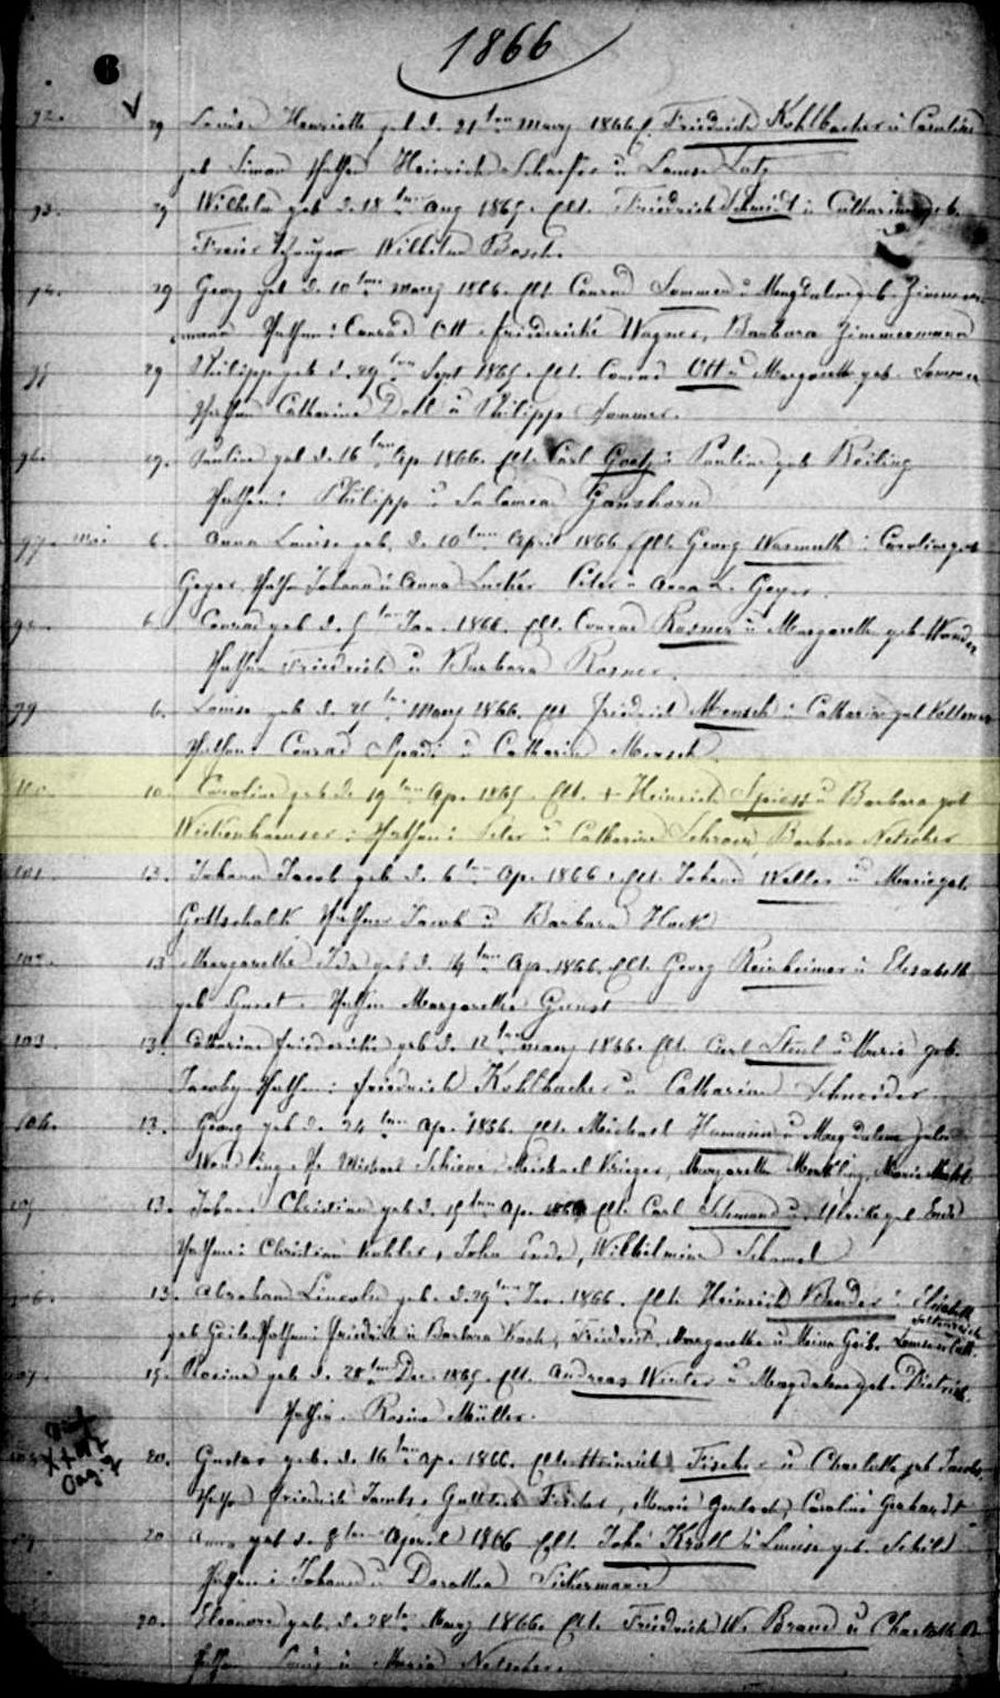 1866
6
92. 29 Louise Henriette geb d. 21ten März 1866 E. Friedrich Kohlbacher u Caroline
geb Simon Pathen Heinrich Schaefer u Louise Lutz
93. 29 Wilhelm geb d. 18ten Aug 1865. Elt. Friedrich Schmidt u Catharina geb.
Wilhelm Bosch.
94. 29 Georg geb d. 10ten März 1866. Elt. Conrad Sommer u Magdalena geb. Zimmer-
mann Pathen: Conrad Ott Friedericke Wagner, Barbara Zimmermann
95 29 Philipp geb d. 29ten Sept 1865. Elt. Conrad Ott u Margareth geb. Sommer
Pathen Catharina Doll u Philipp Sommer.
96. 29. Pauline geb d. 16ten Ap. 1866. Elt. Carl Goetz u Pauline geb Beiling
Pathen: Philipp u Salomea Ganshorn
97. Mai 6. Anna Louise geb. d. 10ten April 1866 Elt Georg Warmuth u Caroline geb
Geyer. Pathe Johann u Anna Lucker Peter u Anna Geyer.
98. 6. Conrad geb d. 5ten Jan. 1866. Elt. Conrad Rosner u Margareth geb
Pathen Friedrich u Barbara Rosner.
99 6. Louise geb d. 25ten März 1866. Elt Friedrich Mensch u Catharin geb
Pathen: Conrad Spadi u Catharina Mensch
100. 10. Caroline geb d. 19ten Ap. 1865. Elt. + Heinrich Spiess u Barbara geb
Wickenhaeuser: Pathen: Peter u Catharina Barbara Netscher
101. 13. Johann Jacob geb d. 6ten Ap. 1866. Elt. Johann Weller u Marie geb.
Gottschalk Pathen Jacob u Barbara Hack
102. 13 Margaretha Ida geb d. 14ten Ap. 1866. Elt. Georg Reinheimer u Elisabeth
geb Pathin Margaretha
103. 13. Catharina Friedericke geb d. 12ten März 1866. Elt. Carl u Marie geb.
Jacoby Pathen: Friedrich Kohlbacher u Catharina Schneider
104. 13. Georg geb d. 24ten Ap. 1866. Elt. Michael Hamann u Magdalena
Wendling. P. Michael Michael Krieger, Margaretha Marie
105 13. Johann Christian geb d. 15ten Ap. 1866 Elt. Carl u. Ulrike geb Ende
Pathen: Christian Kohler, John Ende, Wilhelmine
106. 13. Abraham Lincoln geb. d. 29ten Jan. 1866. Elt. Heinrich Bender u Elisabeth
geb Geib. Pathen: Friedrich u Barbara Koch, Friedrich Margaretha u Geib.
107. 15. Rosina geb d. 28ten Dec. 1865. Elt. Andreas Winter u Magdalena geb. Dietrich.
Pathin. Rosina Müller.
20. Gustav geb. d. 16ten Ap. 1866. Elt. Heinrich Fischer u Charlotte geb Jacobs
Pathe Friedrich Jacobs, Gottlieb Fischer, Marie Gerlach, Caroline
20 Anna geb d. 8ten April 1866 Elt. Joh. Kroll u Louise geb. Schild
Pathen: Johann u Dorothea
20. Eleonore geb. d. 28ten März 1866. Elt. Friedrich W. Braun u Charlotte
Pathen Louis u Maria Netscher.